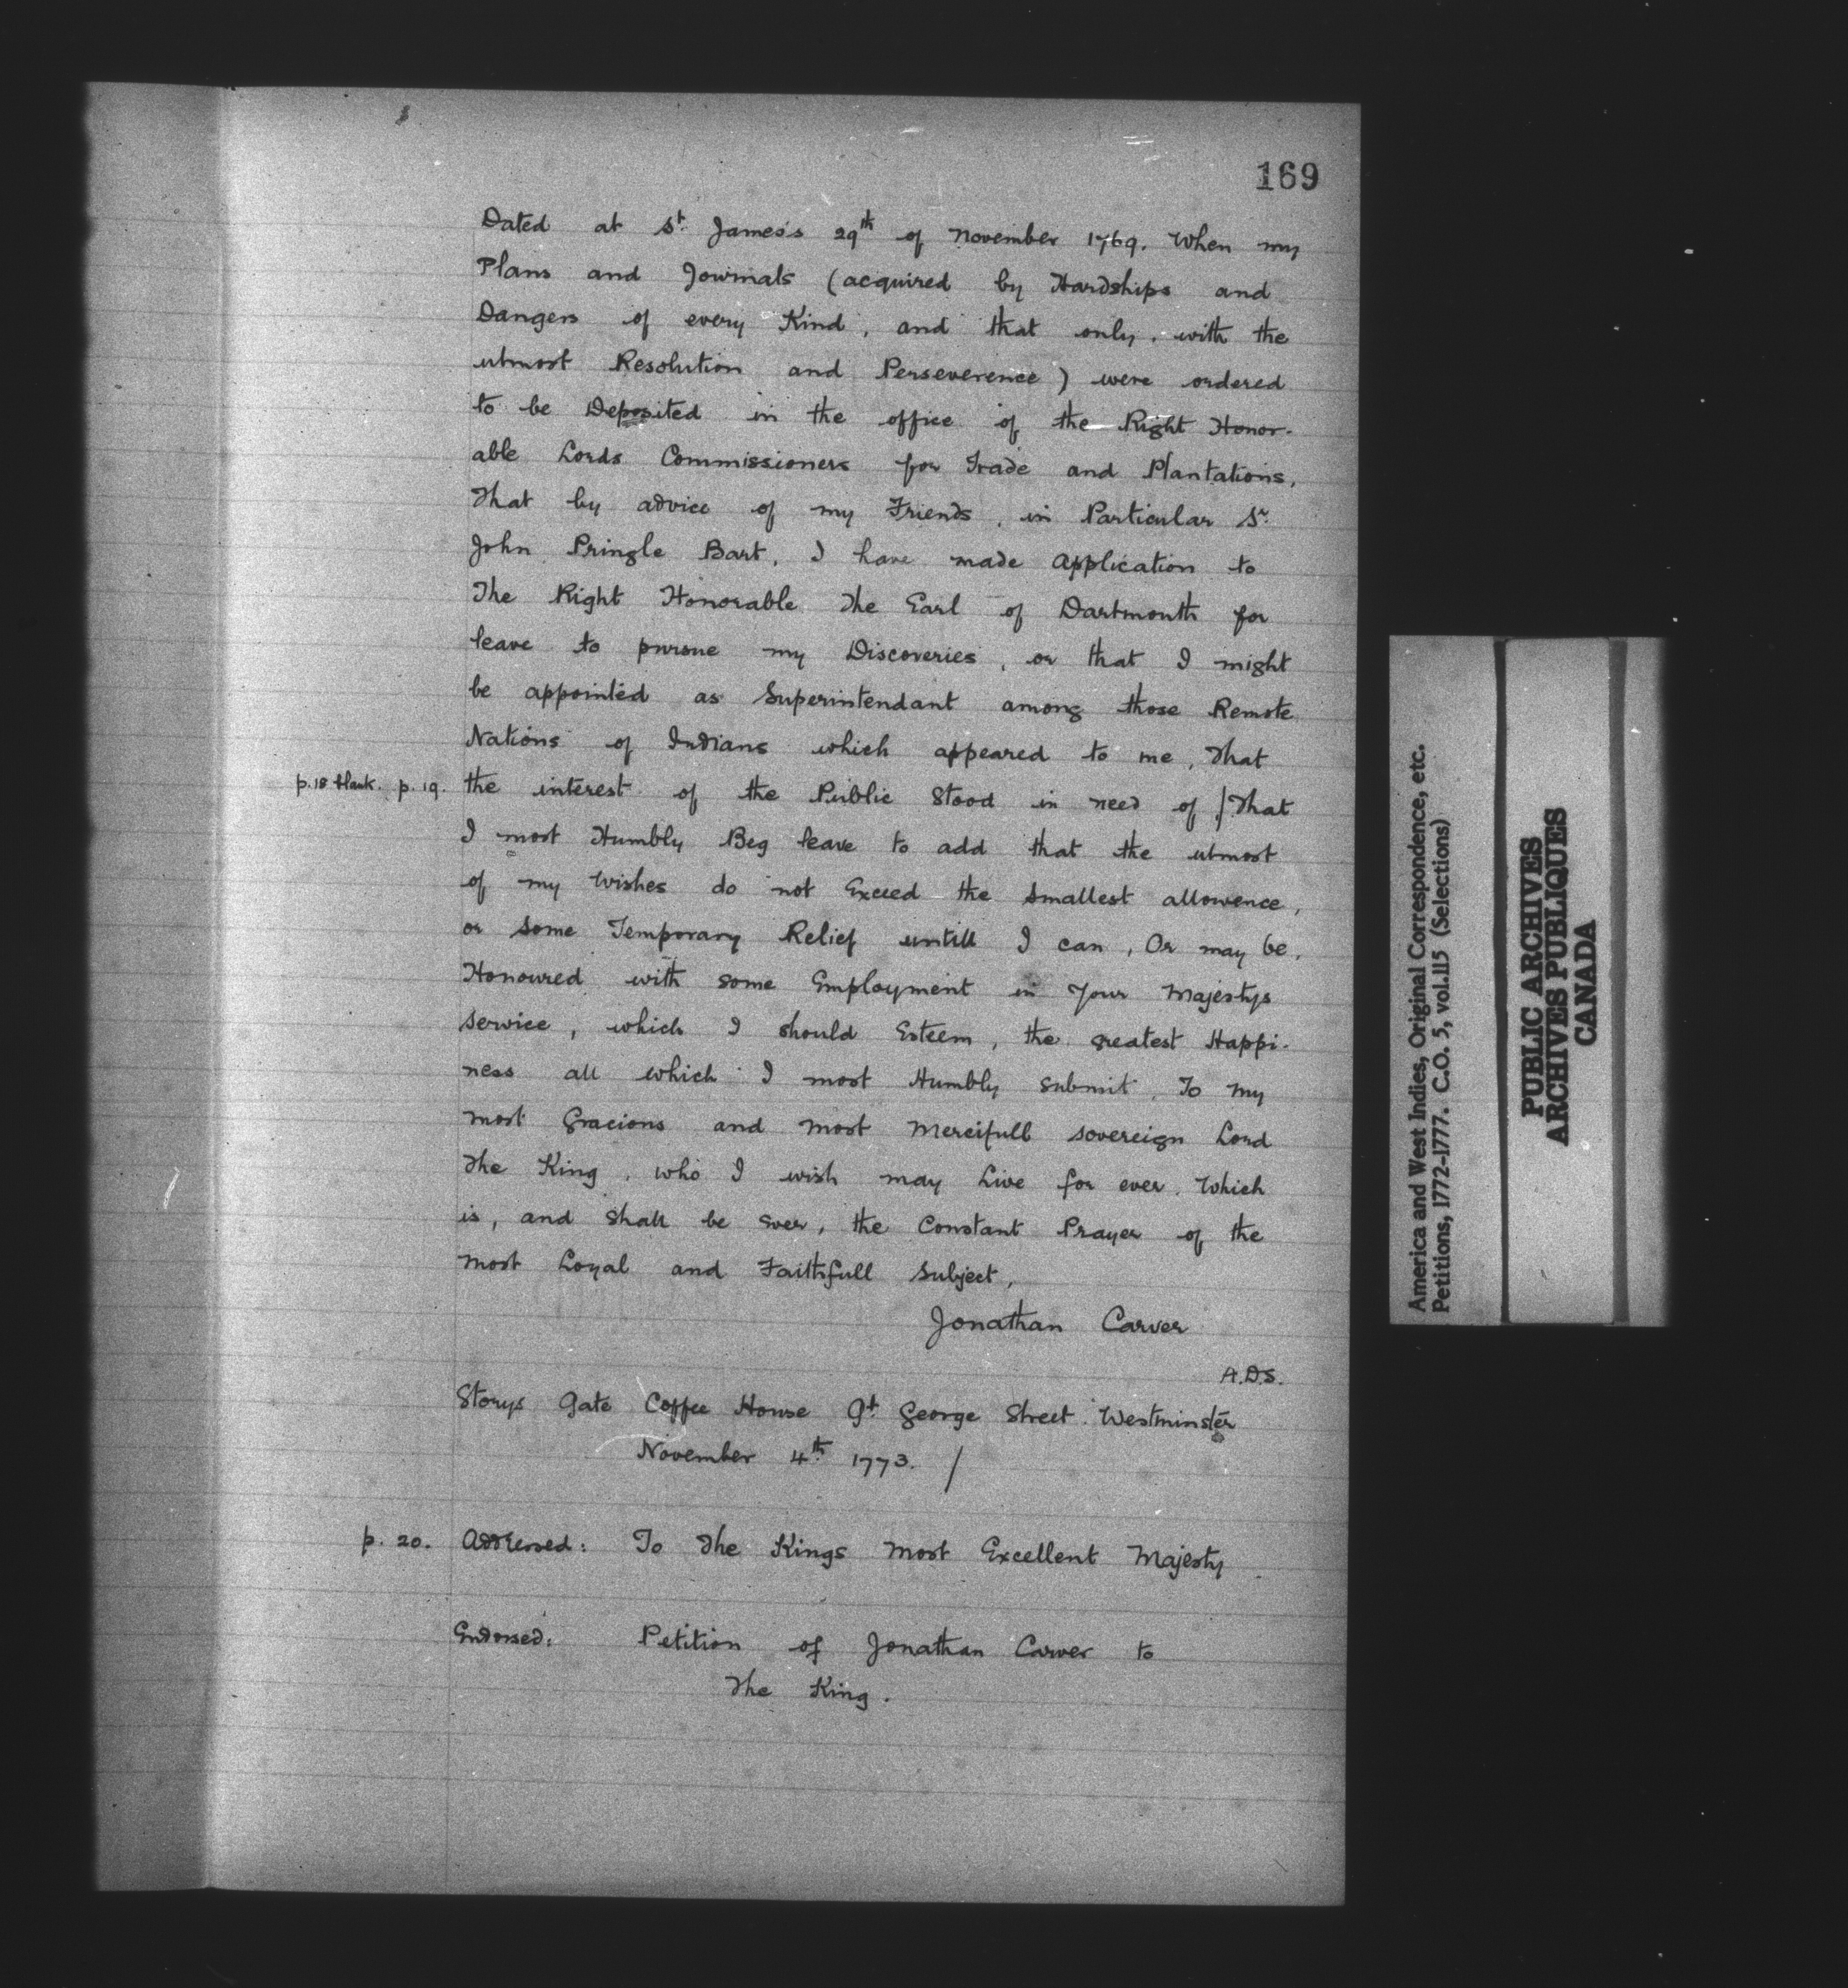 169
Dated at St. James's 29th of November 1769. When my
Plans and Journals (acquired by Hardships and
Dangers of every Kind, and that only, with the
utmost Resolution and Perseverence) were ordered
to be Deposited in the office of the Right Honor-
able Lords Commissioners for Trade and Plantations,
That by advice of my Friends, in Particular Sr.
John Pringle Bart, I have made Application to
The Right Honorable The Earl of Dartmouth for
leave to pursue my Discoveries, or that I might
be appointed as Superintendant among those Remote
Nations of Indians which appeared to me, That
p.18 blank. p. 19. the interest of the Public Stood in need of / That
I most Humbly Beg leave to add that the utmost
of my Wishes do not Exceed the Smallest allowence,
or Some Temporary Relief untill I can, Or may be,
Honoured with some Employment in Your Majestys
Service, which I should Esteem, the greatest Happi-
ness all which I most Humbly submit, To my
most Gracious and most Mercifull sovereign Lord
The King, who I wish may Live for ever. Which
is, and shall be ever, the Constant Prayer of the
most Loyal and Faithfull Subject,
Jonathan Carver
A.D.S.
Storys Gate Coffee House Gt. George Street Westminster
November 4th. 1773. /
p. 20. Addressed: To The Kings Most Excellent Majesty
Endorsed: Petition of Jonathan Carver to
The King.
America and West Indies, Original Correspondence, etc.
Petitions, 1772-1777. C.O. 5, vol.115 (Selections)
PUBLIC ARCHIVES
ARCHIVES PUBLIQUES
CANADA